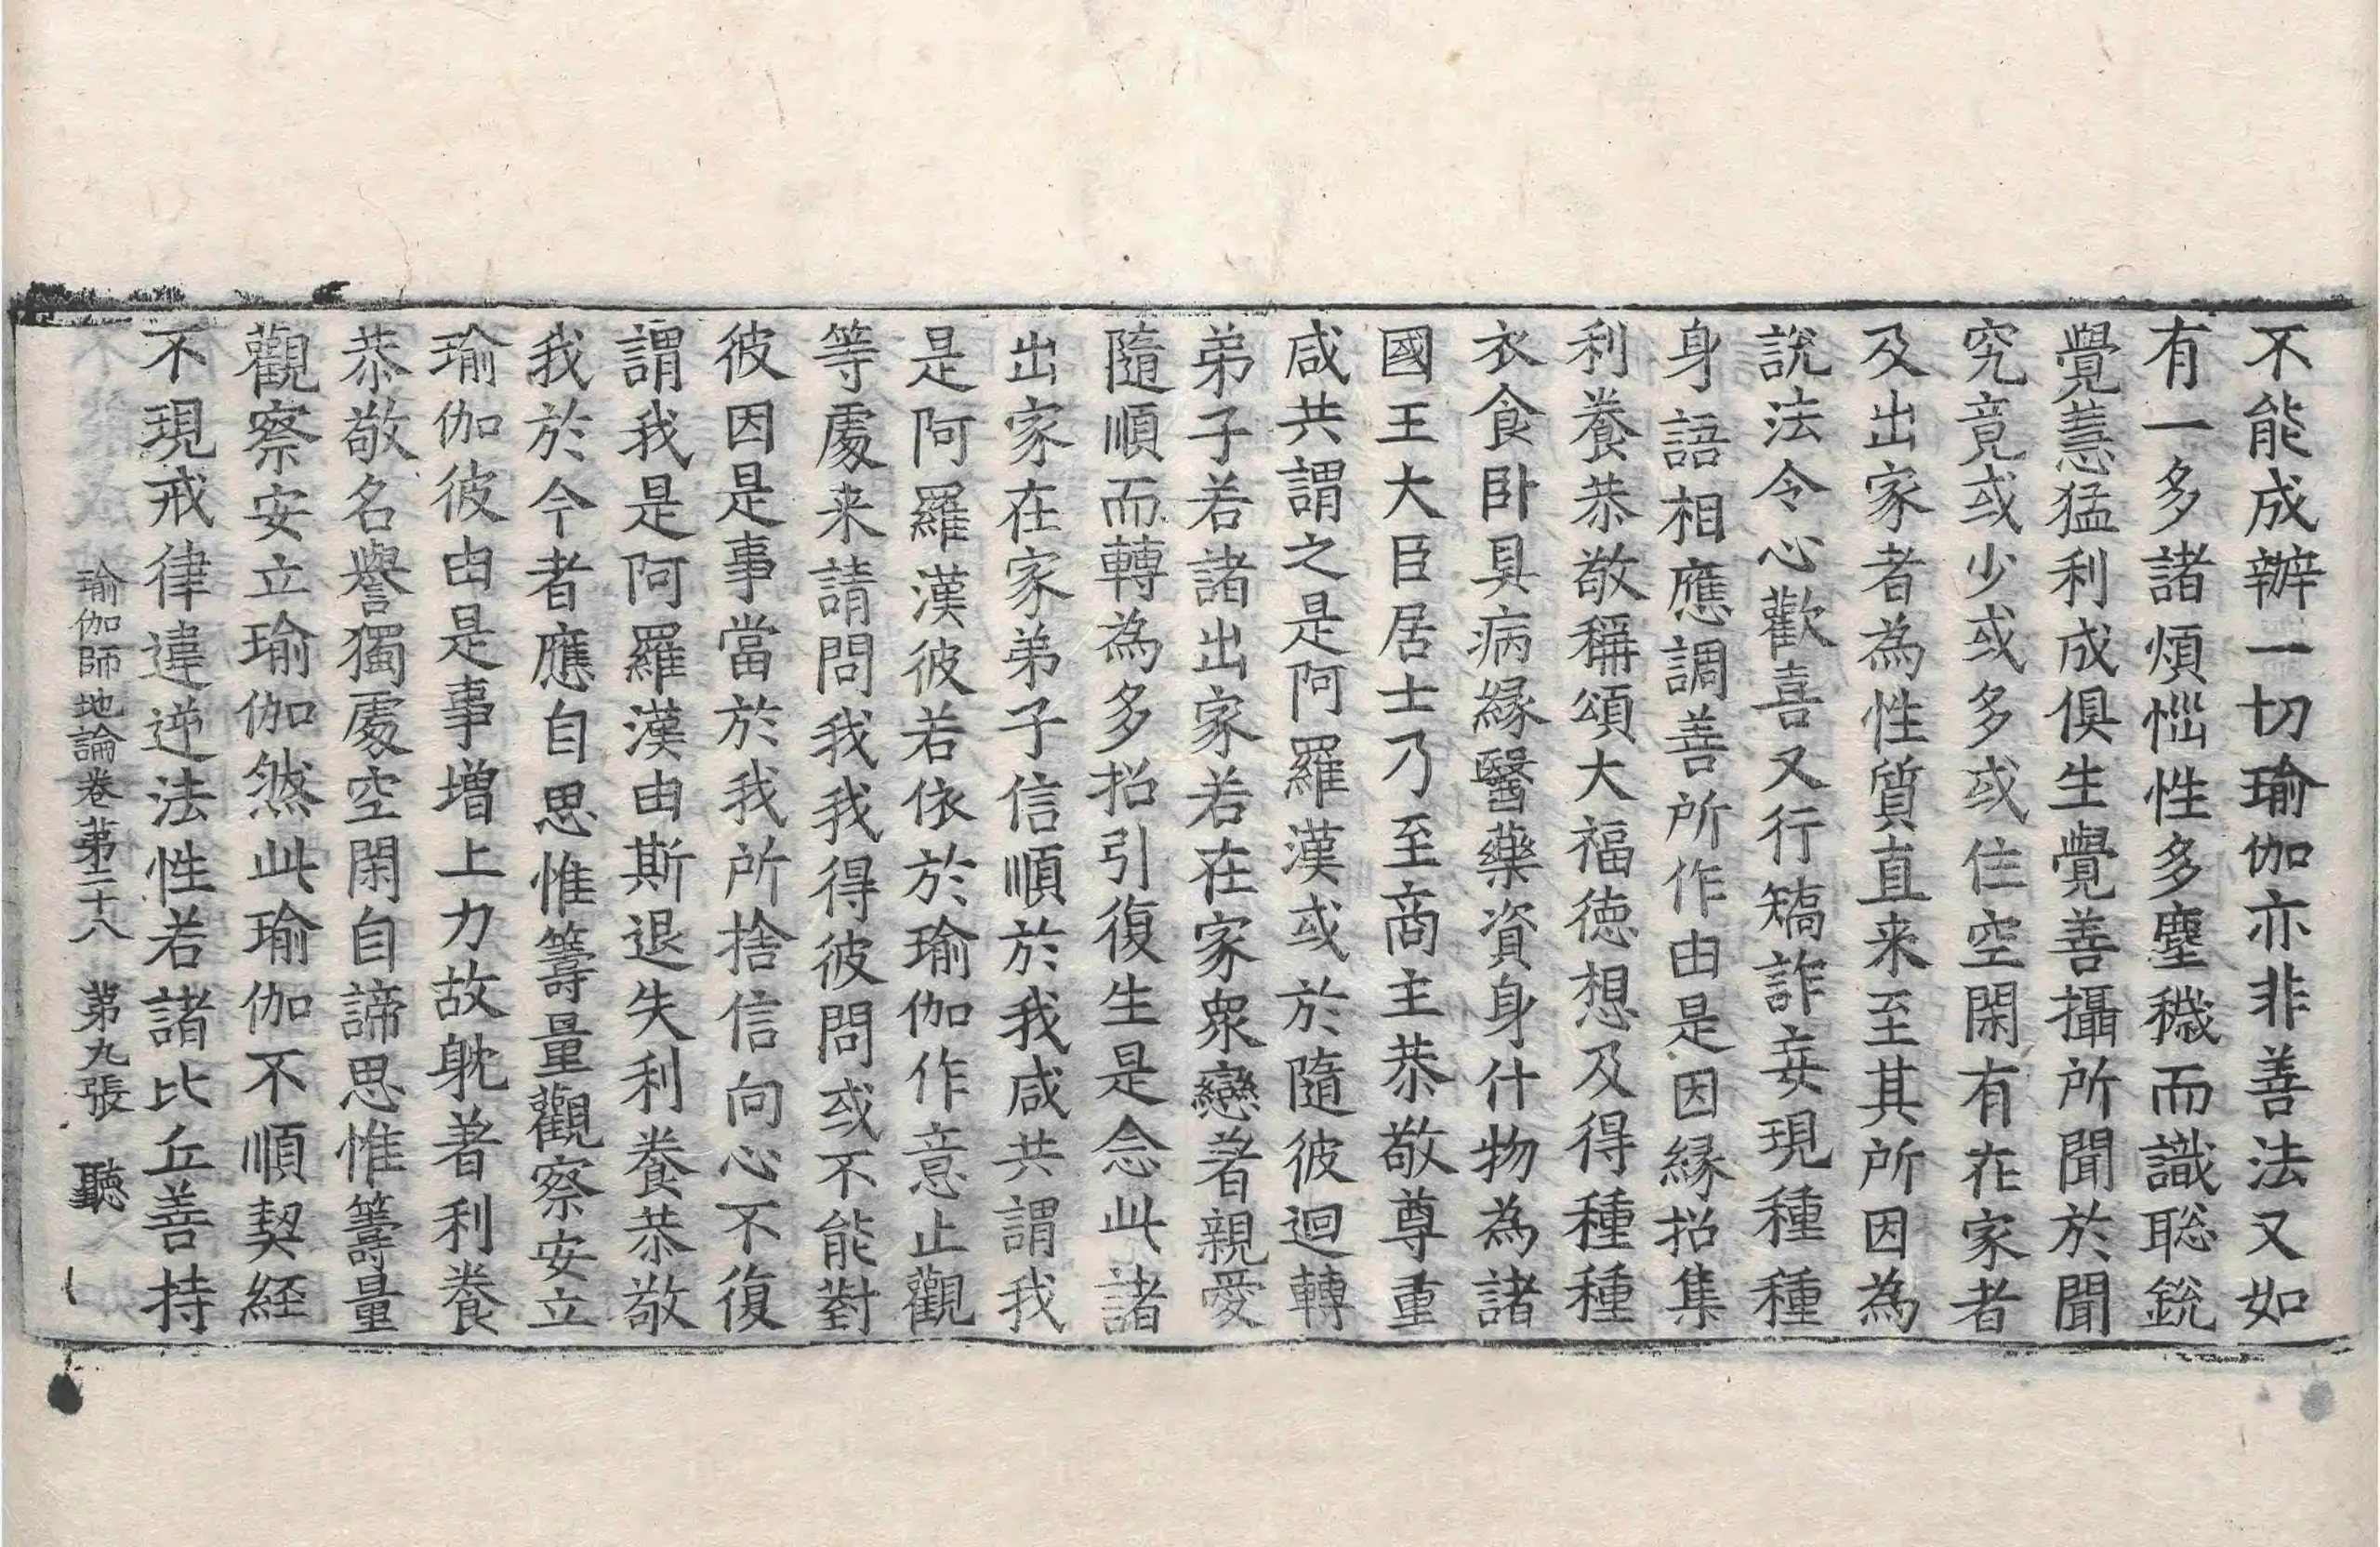 不能成辦一切瑜伽亦非善法又如
有一多諸煩惱性多塵穢而識聡銳
覺慧猛利成俱生覺善攝所聞於聞
究竟或少或多或住空閑有在家者
及出家者為性質直来至其所因為
說法令心歡喜又行矯詐妄現種種
身語相應調善所作由是因縁招集
利養恭敬稱頌大福徳想及得種種
衣食卧具病縁醫藥資身什物為諸
國王大臣居士乃至商主恭敬尊重
咸共謂之是阿羅漢或於隨彼迴轉
弟子若諸出家若在家衆戀著親愛
隨順而轉為多招引復生是念此諸
出家在家弟子信順於我咸共謂我
是阿羅漢彼若依於瑜伽作意止觀
等處来請問我我得彼問或不能對
彼因是事當於我所捨信向心不復
謂我是阿羅漢由斯退失利養恭敬
我於今者應自思惟籌量觀察安立
瑜伽彼由是事增上力故躭著利養
恭敬名譽獨處空閑自諦思惟籌量
觀察安立瑜伽然此瑜伽不順契経
不現戒律違逆法性若諸比丘善持
瑜伽師地論卷第二十八 第九張 聽